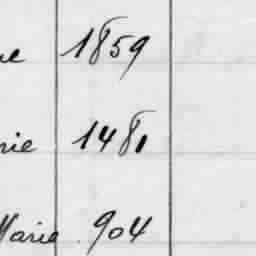 1859
1481
Marie 904